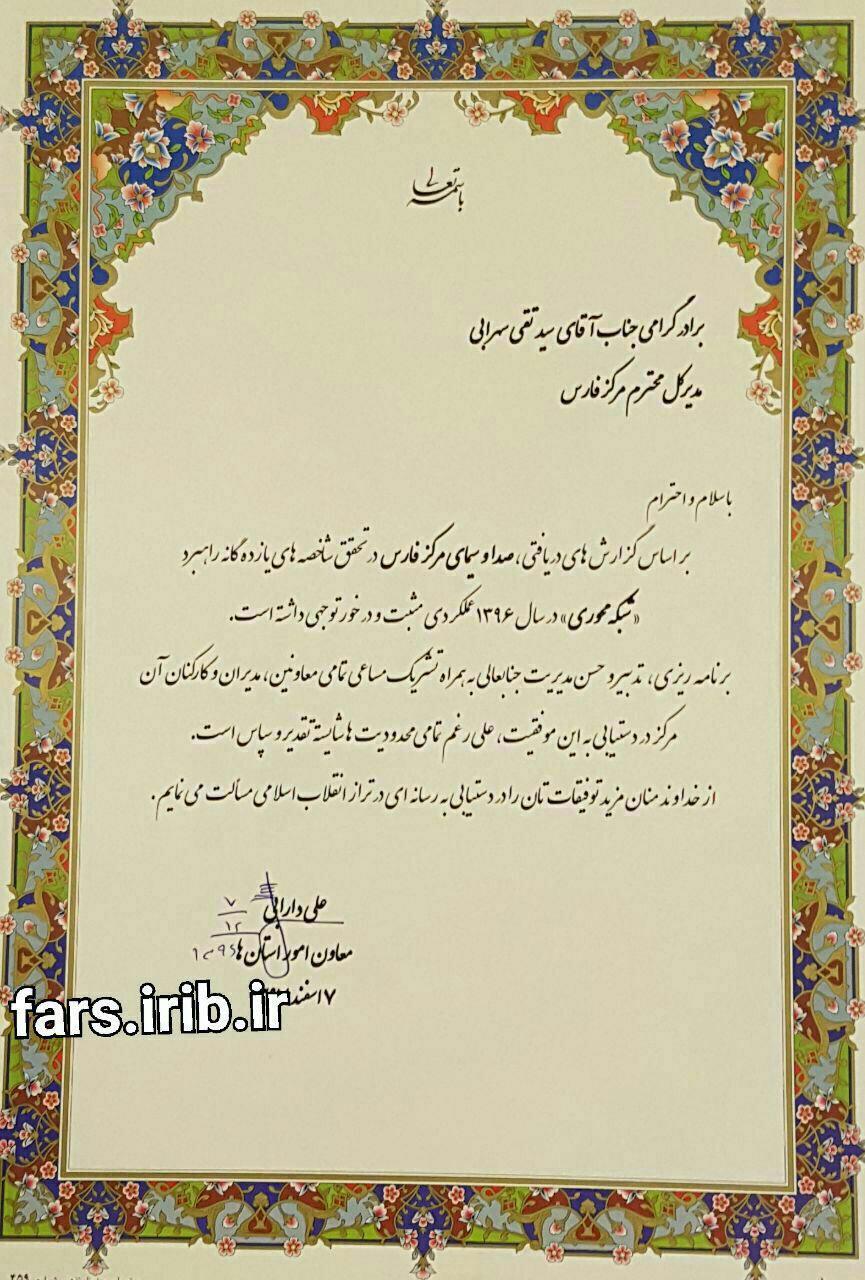 باسمه تعالی
برادر گرامی جناب آقای سید تقی سهرابی
مدیرکل محترم مرکز فارس
باسلام و احترام
بر اساس گزارش های دریافتی، صدا و سیمای مرکز فارس در تحقق شاخصه های یازده گانه راهبرد
«شبکه محوری» در سال ۱۳۹۶ عملکردی مثبت و در خور توجهی داشته است.
برنامه ریزی، تدبیر و حسن مدیریت جنابعالی به همراه تشریک مساعی تمامی معاونین، مدیران و کارکنان آن
مرکز در دستیابی به این موفقیت، علی رغم تمامی محدودیت ها شایسته تقدیر و سپاس است.
از خداوند منان مزید توفیقات تان را در دستیابی به رسانه ای در تراز انقلاب اسلامی مسالت می نمایم.
علی دارابی
۷
۱۲
معاون امور استان ها
۷ اسفند
fars.irib.ir